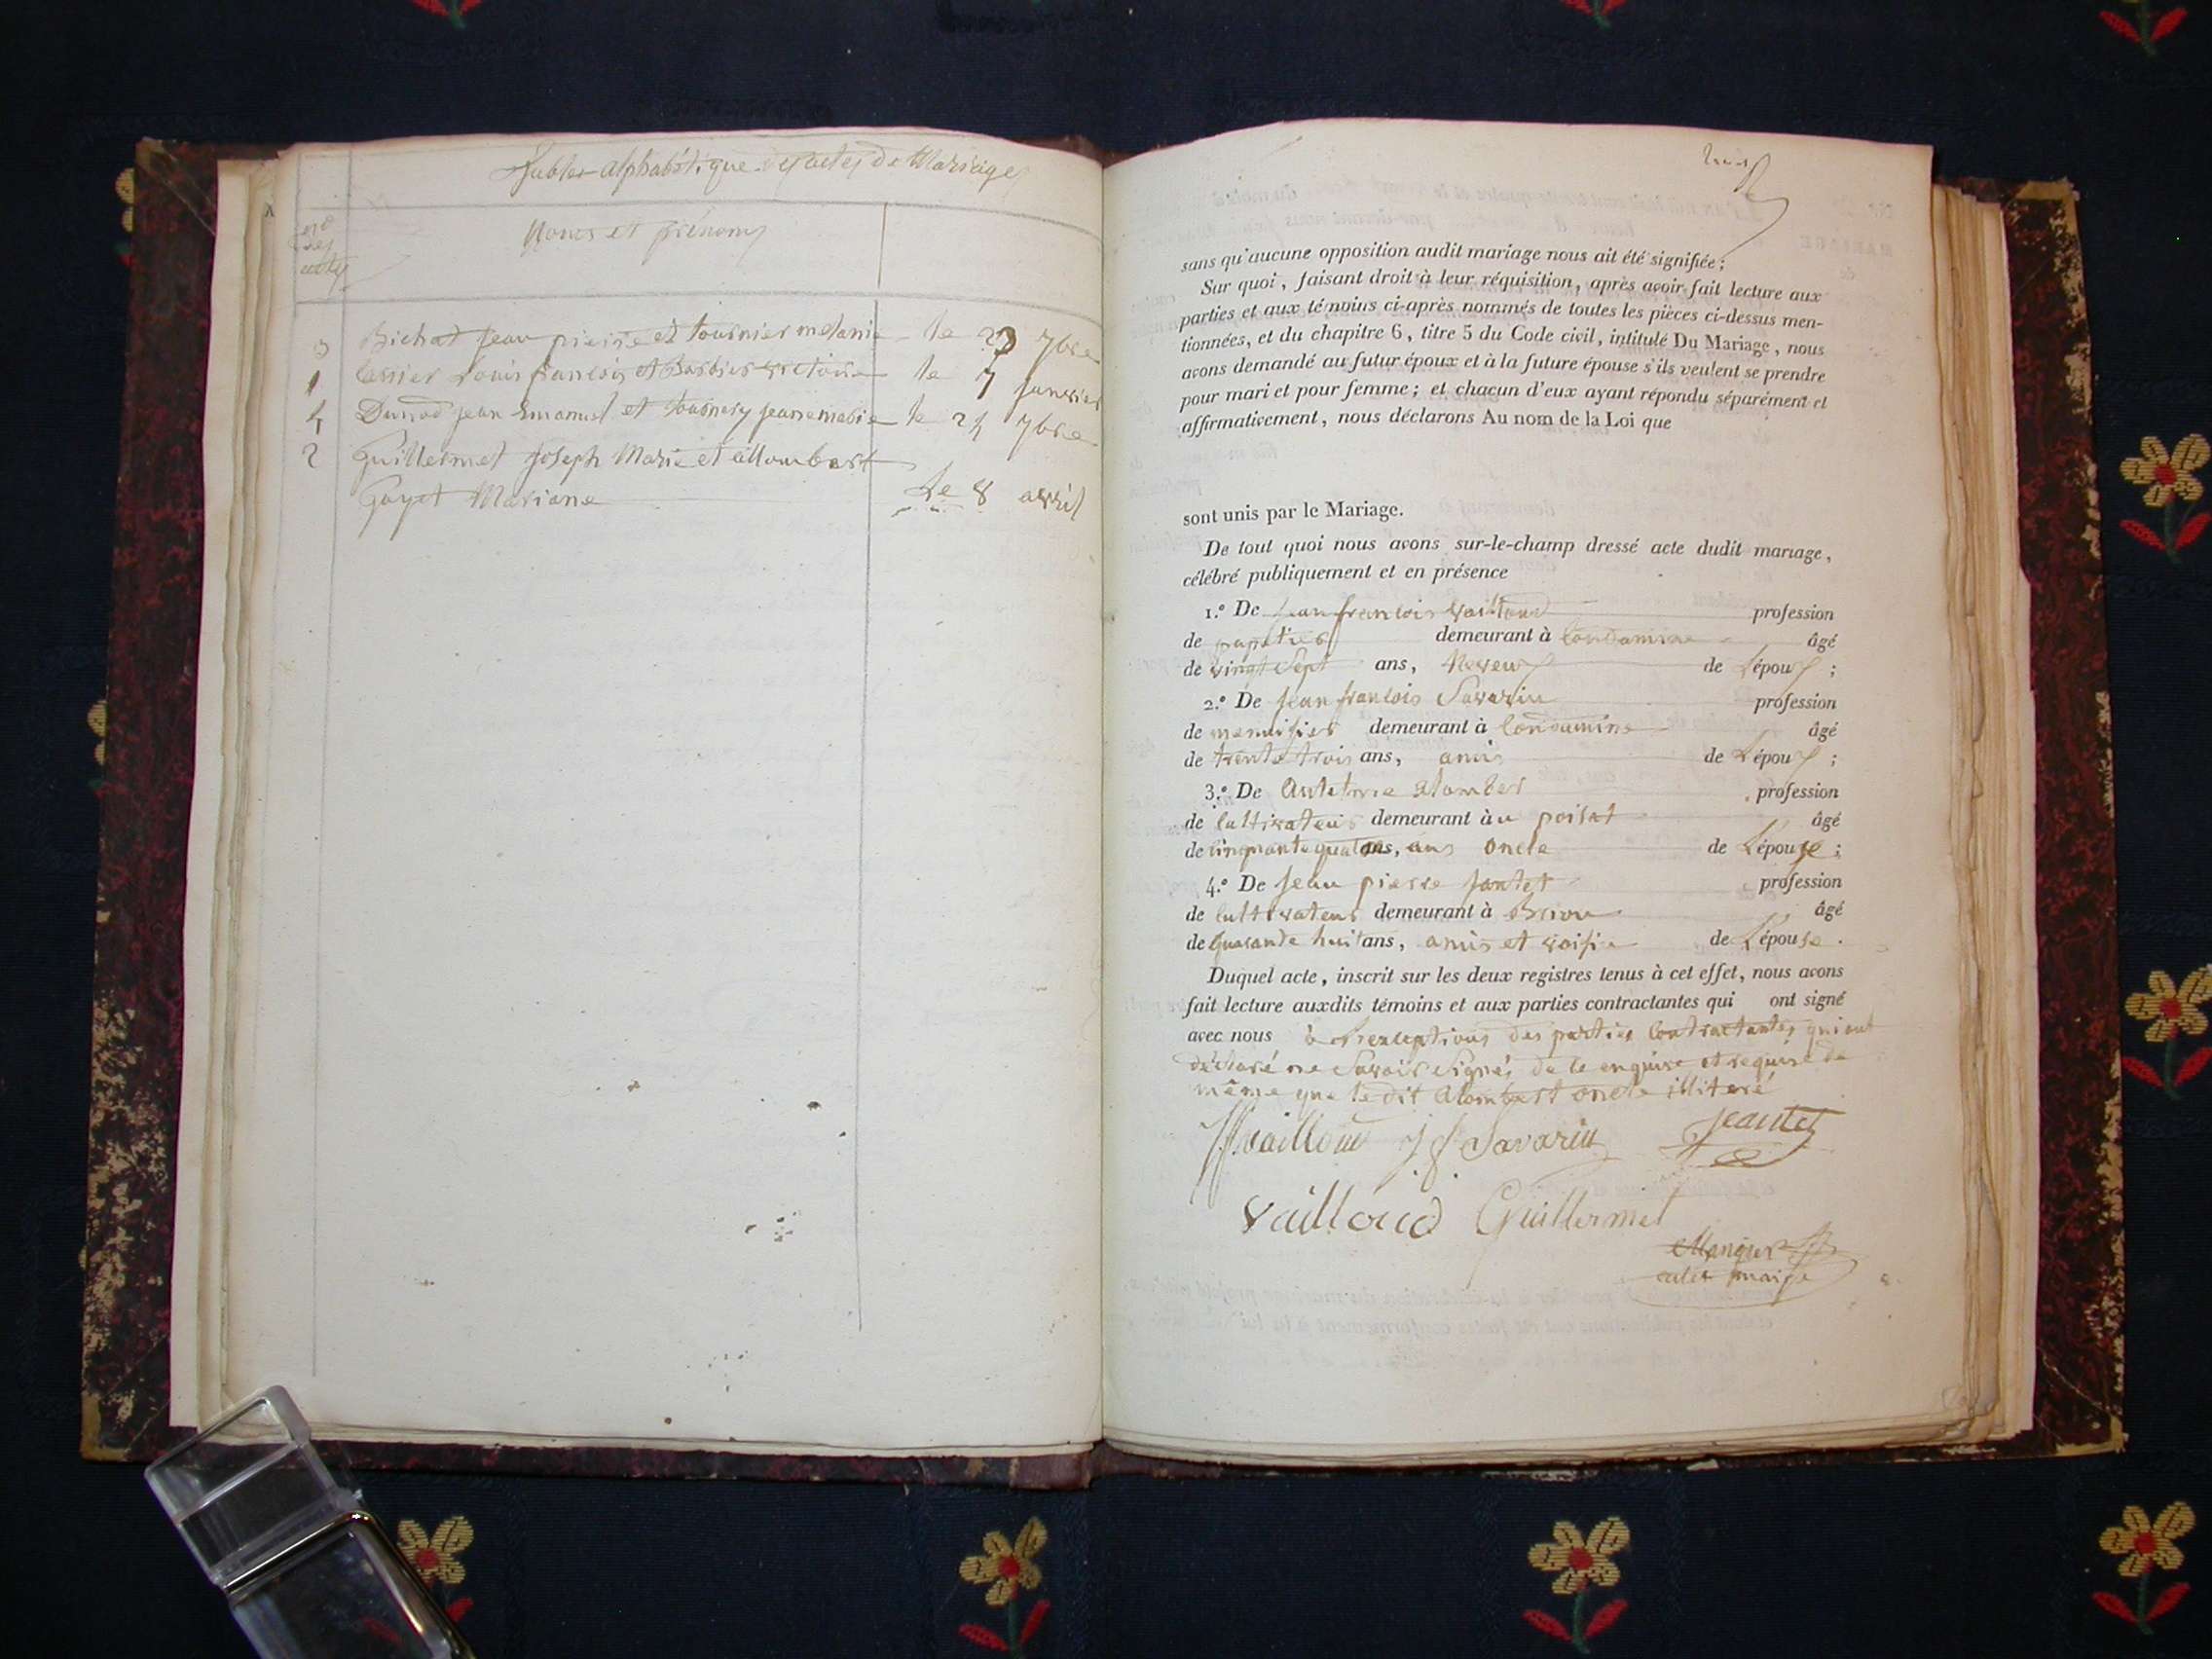 Table alphabétique des actes de Mariages
nos
des
actes
Noms et prénoms
3 Bichat Jean pierre et tournier melanie le 23 7bre
1 Cassier Louis francois et Barbier victoire le 7 janvier
4 Dunod jean Emanuel et tournery jeanemarie le 24 7bre
2 Guillermet Joseph Marie et allombert
Goyet Mariane le 8 avril
sans qu'aucune opposition audit mariage nous ait été signifiée ;
Sur quoi, faisant droit à leur réquisition, après avoir fait lecture aux
parties et aux témoins ci-après nommés de toutes les pièces ci-dessus men-
tionnées, et du chapitre 6, titre 5 du Code civil, intitulé Du Mariage, nous
avons demandé au futur époux et à la future épouse s'ils veulent se prendre
pour mari et pour femme ; et chacun d'eux ayant répondu séparément et
affirmativement, nous déclarons Au nom de la Loi que
sont unis par le Mariage.
De tout quoi nous avons sur-le-champ dressé acte dudit mariage,
célébré publiquement et en présence
1.° De jean francois vailloud profession
de papetier demeurant à Condamine âgé
de vingt Sept ans, Neveux de L'époux ;
2.° De Jean francois Savarin profession
de menuisier demeurant à Condamine âgé
de trente trois ans, amis de L'époux ;
3.° De Antelme alomber profession
de Cultivateur demeurant àu poisat âgé
de Cinquante quatre ans, oncle de L'épouse ;
4.° De Jean pierre jantet profession
de Cultivateur demeurant à Brion âgé
de Quarante huit ans, amis et voisin de L'épouse.
Duquel acte, inscrit sur les deux registres tenus à cet effet, nous avons
fait lecture auxdits témoins et aux parties contractantes qui ont signé
avec nous à l'exceptions des parties Contractantes qui ont
déclaré ne Savoir Signés de ce enquise et requise de
même que le dit Alombert oncle illiteré
vailloud j f Savarin Jeantet
vailloud Guillermet
maire